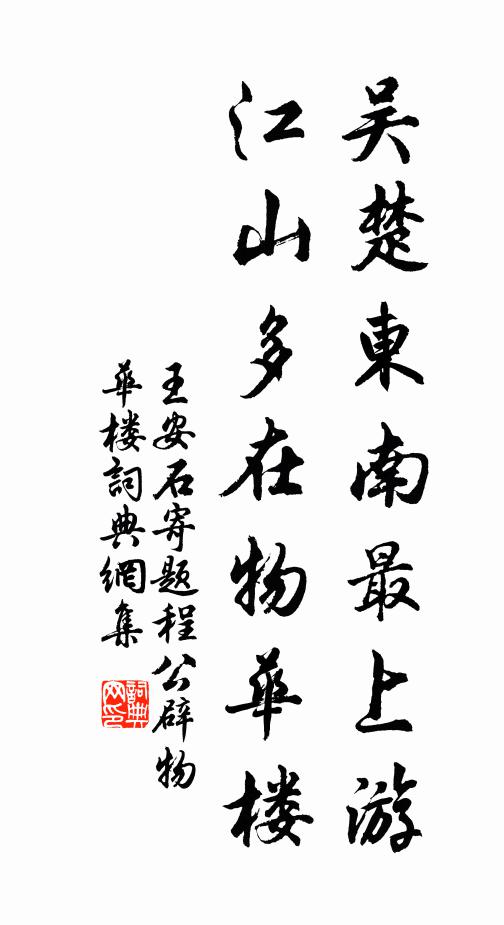 吴楚東南最上游
江山多在物華楼
王安石寄题程公辟物
華楼詞典網集
詞典網印